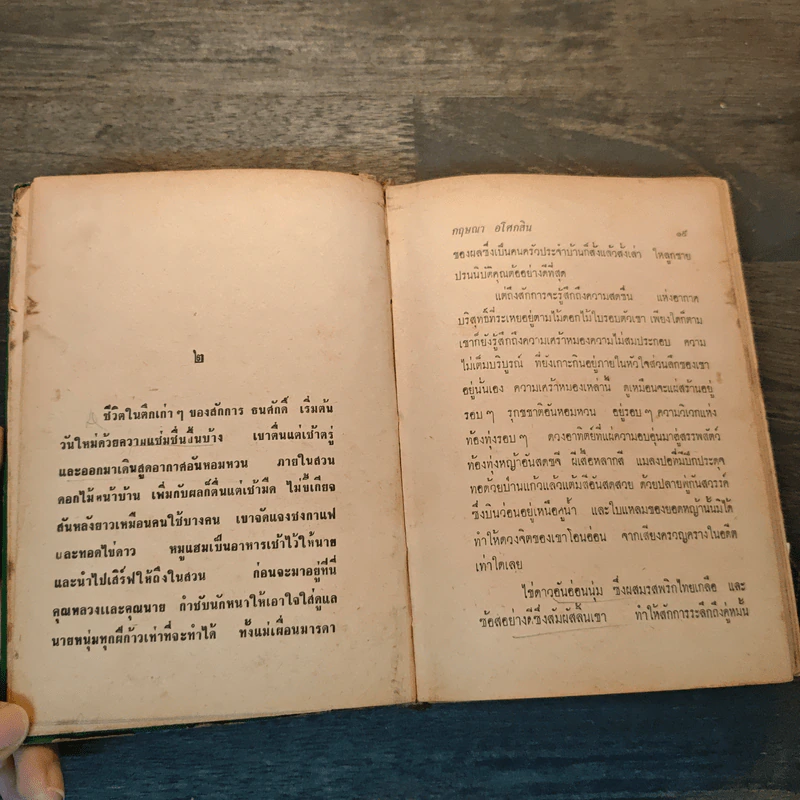 ๒
ชีวิตในตึกเก่า ๆ ของสักการ ธนศักดิ์ เริ่มต้น
วันใหม่ด้วยความแช่มชื่นขึ้นบ้าง เขาตื่นแต่เช้าตรู่
และออกมาเดินสูดอากาศอันหอมหวน ภายในสวน
ดอกไม้หน้าบ้าน เพิ่มกับผลก็ตื่นแต่เช้ามืด ไม่ขี้เกียจ
สันหลังยาวเหมือนคนใช้บางคน เขาจัดแจงชงกาแฟ
และทอดไข่ดาว หมูแฮมเป็นอาหารเช้าไว้ให้นาย
และนำไปเสิร์ฟให้ถึงในสวน ก่อนจะมาอยู่ที่นี่
คุณหลวงและคุณนาย กำชับนักหนาให้เอาใจใส่ดูแล
นายหนุ่มทุกฝีก้าวเท่าที่จะทำได้ ทั้งแม่เผื่อนมารดา
กฤษณา อโศกสิน ๑๕
ของผลซึ่งเป็นคนครัวประจำบ้านก็สั่งแล้วสั่งเล่า ให้ลูกชาย
ปรนนิบัติคุณต้ออย่างดีที่สุด
แต่ถึงสักการจะรู้สึกถึงความสดชื่น แห่งอากาศ
บริสุทธิ์ที่ระเหยอยู่ตามไม้ดอกไม้ใบรอบตัวเขา เพียงใดก็ตาม
เขาก็ยังรู้สึกถึงความเศร้าหมองความไม่สมประกอบ ความ
ไม่เต็มบริบูรณ์ ที่ยังเกาะกินอยู่ภายในหัวใจส่วนลึกของเขา
อยู่นั่นเอง ความเศร้าหมองเหล่านี้ ดูเหมือนจะแผ่สร้านอยู่
รอบ ๆ รุกขชาติอันหอมหวน อยู่รอบ ๆ ความวิเวกแห่ง
ท้องทุ่งรอบ ๆ ดวงอาทิตย์ที่แผ่ความอบอุ่นมาสู่สรรพสัตว์
ท้องทุ่งหญ้าอันสดขจี ผีเสื้อหลากสี แมลงปอที่มีปีกประดุจ
ทอด้วยม่านแก้วแล้วแต้มสีอันสดสวย ด้วยปลายพู่กันสวรรค์
ซึ่งบินว่อนอยู่เหนือคูน้ำ และใบแหลมของยอดหญ้านั้นมิได้
ทำให้ดวงจิตของเขาโอนอ่อน จากเสียงครวญครางในอดีต
เท่าใดเลย
ไข่ดาวอันอ่อนนุ่ม ซึ่งผสมรสพริกไทยเกลือ และ
ซ้อสอย่างดีซึ่งสัมผัสลิ้นเขา ทำให้สักการะลึกถึงคู่หมั้น